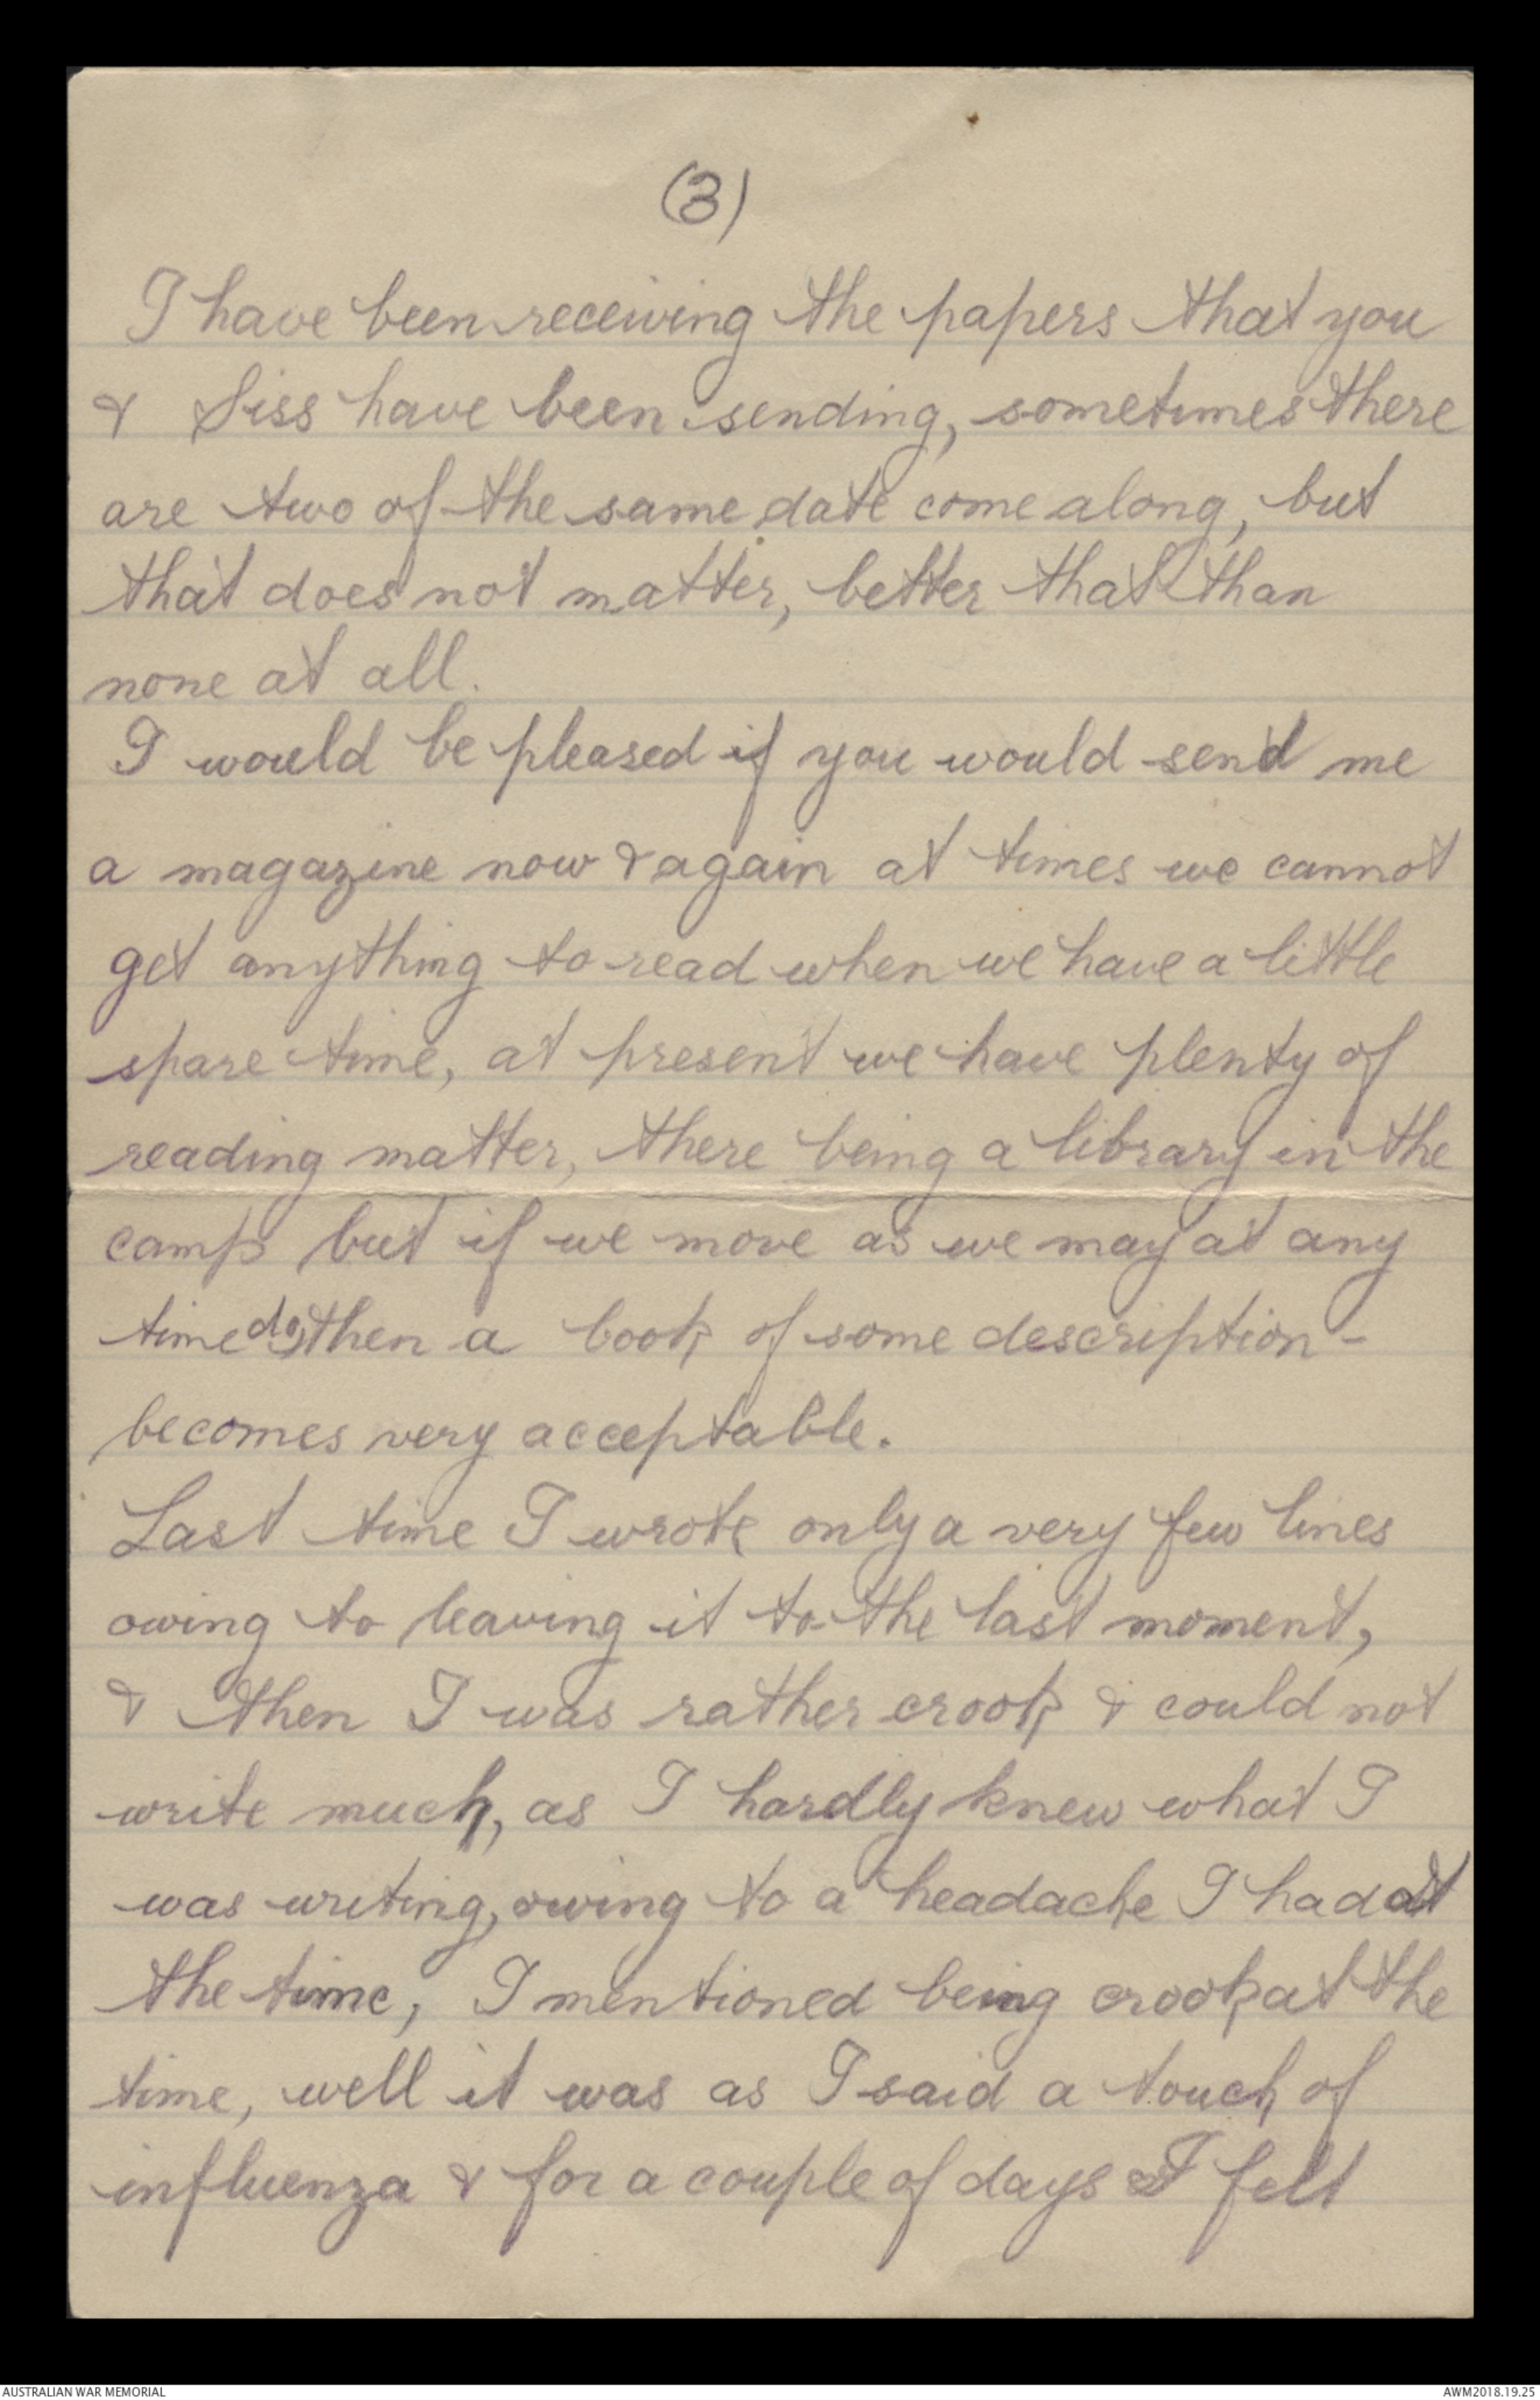 (3)
I have been receiving the papers that you
& Siss have been sending, sometimes there
are two of the same date come along, but
that does not matter, better that than
none at all.
I would be pleased if you would send me
a magazine now & again at times we cannot
get anything to read when we have a little
spare time, at present we have plenty of
reading matter, there being a library in the
camp but if we move as we may at any
time do, then a book of some description -
becomes very acceptable.
Last time I wrote only a very few lines
owing to leaving it to the last moment,
& then I was rather crook & could not
write much, as I hardly knew what I
was writing, owing to a headache I had at
the time, I mentioned being crook at the
time, well it was as I said a touch of
influenza & for a couple of days I felt
AUSTRALIAN WAR MEMORIAL
AWM2018.19.25